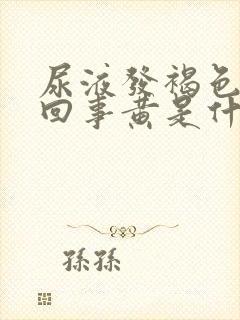 尿液發褐色
回事黃是什
孫孫